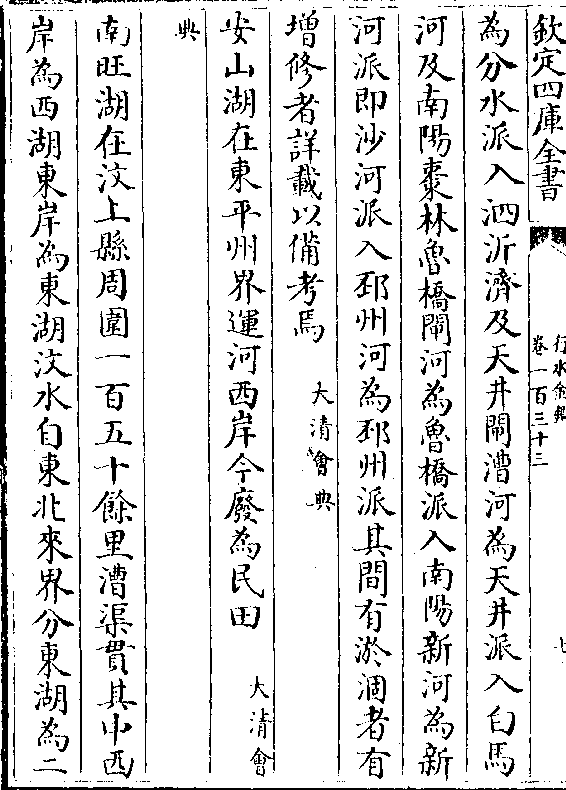 欽定四庫全書
行水金鑑
卷一百三十三
七
為分水派入泗沂濟及天井閘漕河為天井派入白馬
河及南陽棗林魯橋閘河為魯橋派入南陽新河為新
河派即沙河派入邳州河為邳州派其間有淤涸者有
增修者詳載以備考焉 大清會典
安山湖在東平州界運河西岸今廢為民田 大清會
典
南旺湖在汶上縣周圍一百五十餘里漕渠貫其中西
岸為西湖東岸為東湖汶水自東北來界分東湖為二